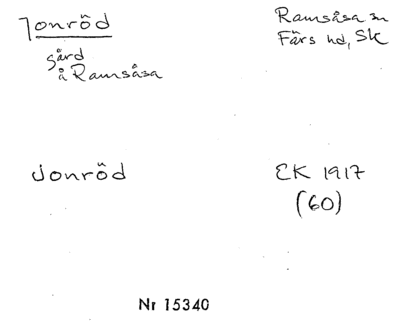 Jonröd
gård
å Ramsåsa
Ramsåsa sn
Färs hd, Sk
Jonröd
EK 1917
(60)
Nr 15340